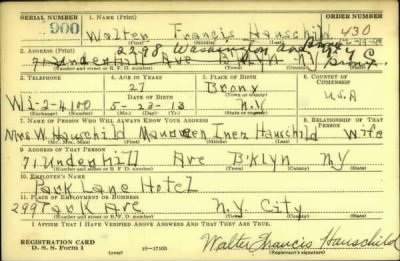 SERIAL NUMBER 1. NAME (Print) ORDER NUMBER
900 Walter Francis Hauschild 430
(First) (Middle) (Last)
2298 Washington
2. ADDRESS (Print)
71 Underhill Ave B'klyn N.Y. Bronx
(Number and street or R. F. D. number) (Town) (County) (State)
3. TELEPHONE 4. AGE IN YEARS 5. PLACE OF BIRTH 6. COUNTRY OF CITIZENSHIP
27 Bronx
DATE OF BIRTH (Town or county) U.S.A
Wi-2-4100 5-23-13 N.Y.
(Exchange) (Number) (Mo.) (Day) (Yr.) (State or country)
7. NAME OF PERSON WHO WILL ALWAYS KNOW YOUR ADDRESS 8. RELATIONSHIP OF THAT PERSON
Mrs W. Hauschild Inez Hauschild Wife
(Mr., Mrs., Miss) (First) (Middle) (Last)
9. ADDRESS OF THAT PERSON
71 Underhill Ave B'klyn N.Y
(Number and street or R. F. D. number) (Town) (County) (State)
10. EMPLOYER'S NAME
Park Lane Hotel
11. PLACE OF EMPLOYMENT OR BUSINESS
299 Park Ave N.Y. City
(Number and street or R. F. D. number) (Town) (County) (State)
I AFFIRM THAT I HAVE VERIFIED ABOVE ANSWERS AND THAT THEY ARE TRUE.
REGISTRATION CARD
D. S. S. Form 1 (over) 16—17105 Walter Francis Hauschild
(Registrant's signature)